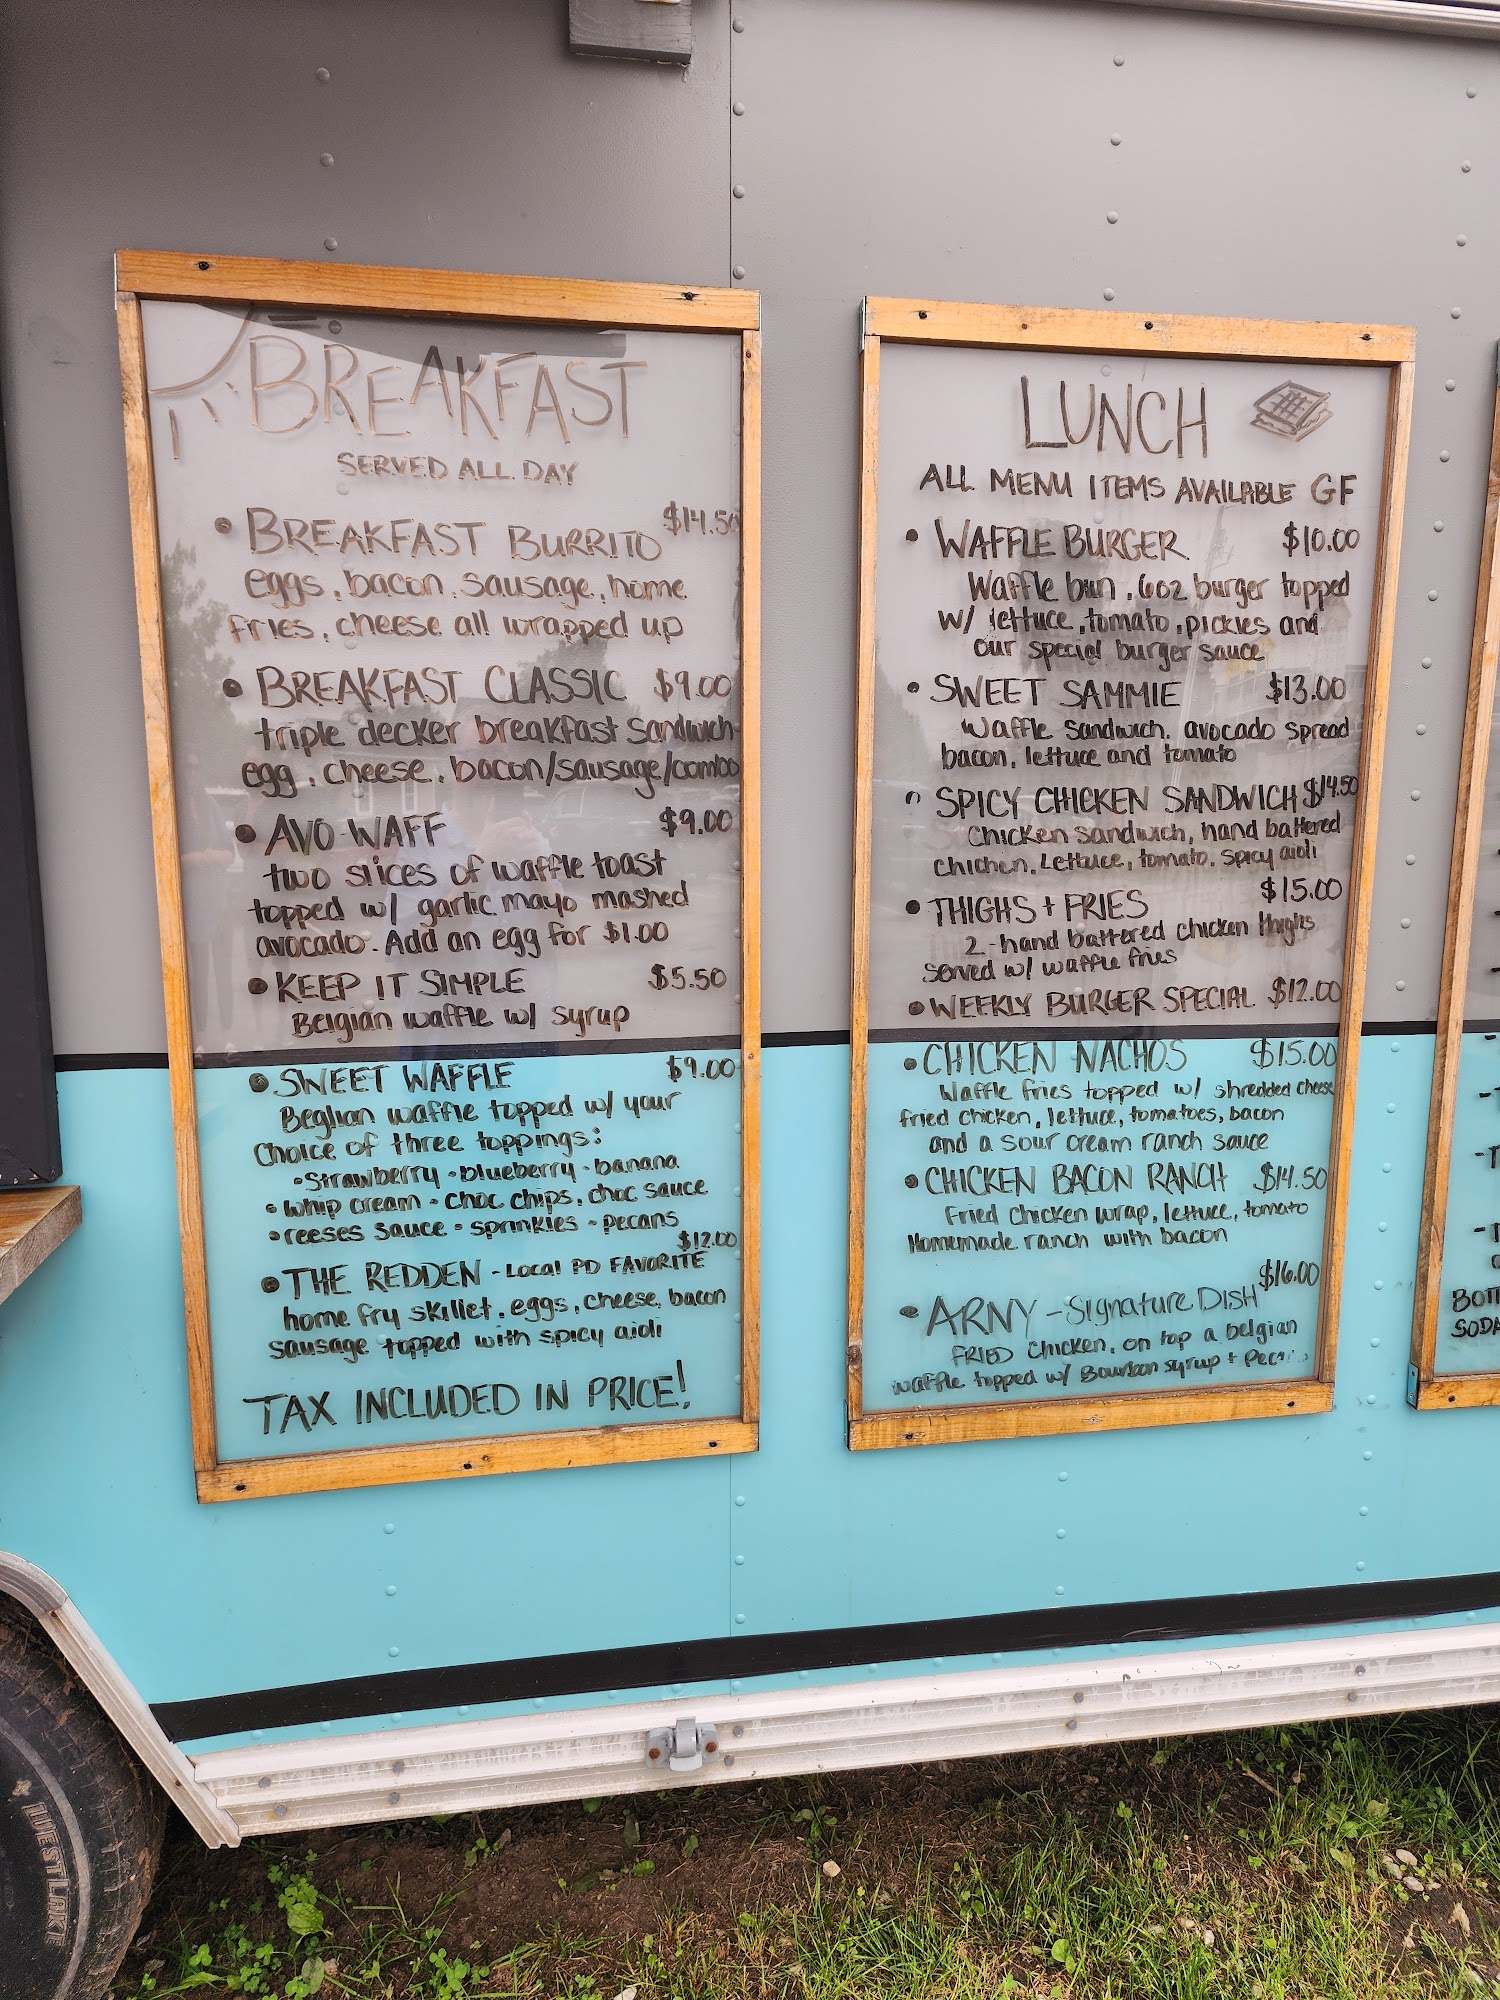 BREAKFAST
SERVED ALL DAY
• BREAKFAST BURRITO $14.50
eggs, bacon, sausage, home
fries, cheese all wrapped up
• BREAKFAST CLASSIC $9.00
triple decker breakfast sandwich
egg, cheese, bacon/sausage/combo
• AVO-WAFF $9.00
two slices of waffle toast
topped w/ garlic mayo mashed
avocado. Add an egg for $1.00
• KEEP IT SIMPLE $5.50
Belgian waffle w/ syrup
• SWEET WAFFLE $9.00
Beglian waffle topped w/ your
Choice of three toppings:
• Strawberry • blueberry • banana
• whip cream • choc chips, choc sauce
• reeses sauce • sprinkles • pecans
$12.00
• THE REDDEN - Local PD FAVORITE
home fry skillet, eggs, cheese, bacon
sausage topped with spicy aioli
TAX INCLUDED IN PRICE!
LUNCH
ALL MENU ITEMS AVAILABLE GF
• WAFFLE BURGER $10.00
Waffle bun, 6oz burger topped
w/ lettuce, tomato, pickles and
our special burger sauce
• SWEET SAMMIE $13.00
Waffle sandwich, avocado spread
bacon, lettuce and tomato
• SPICY CHICKEN SANDWICH $14.50
Chicken sandwich, hand battered
chichen, Lettuce, tomato, spicy aioli
• THIGHS + FRIES $15.00
2-hand battered chicken thighs
served w/ waffle fries
• WEEKLY BURGER SPECIAL $12.00
• CHICKEN NACHOS $15.00
Waffle fries topped w/ shredded cheese
fried chicken, lettuce, tomatoes, bacon
and a sour cream ranch sauce
• CHICKEN BACON RANCH $14.50
Fried Chicken wrap, lettuce, tomato
Homemade ranch with bacon
$16.00
• ARNY - Signature DISH
FRIED Chicken, on top a belgian
waffle topped w/ Bourbon syrup +
SODA
WESTLAKE